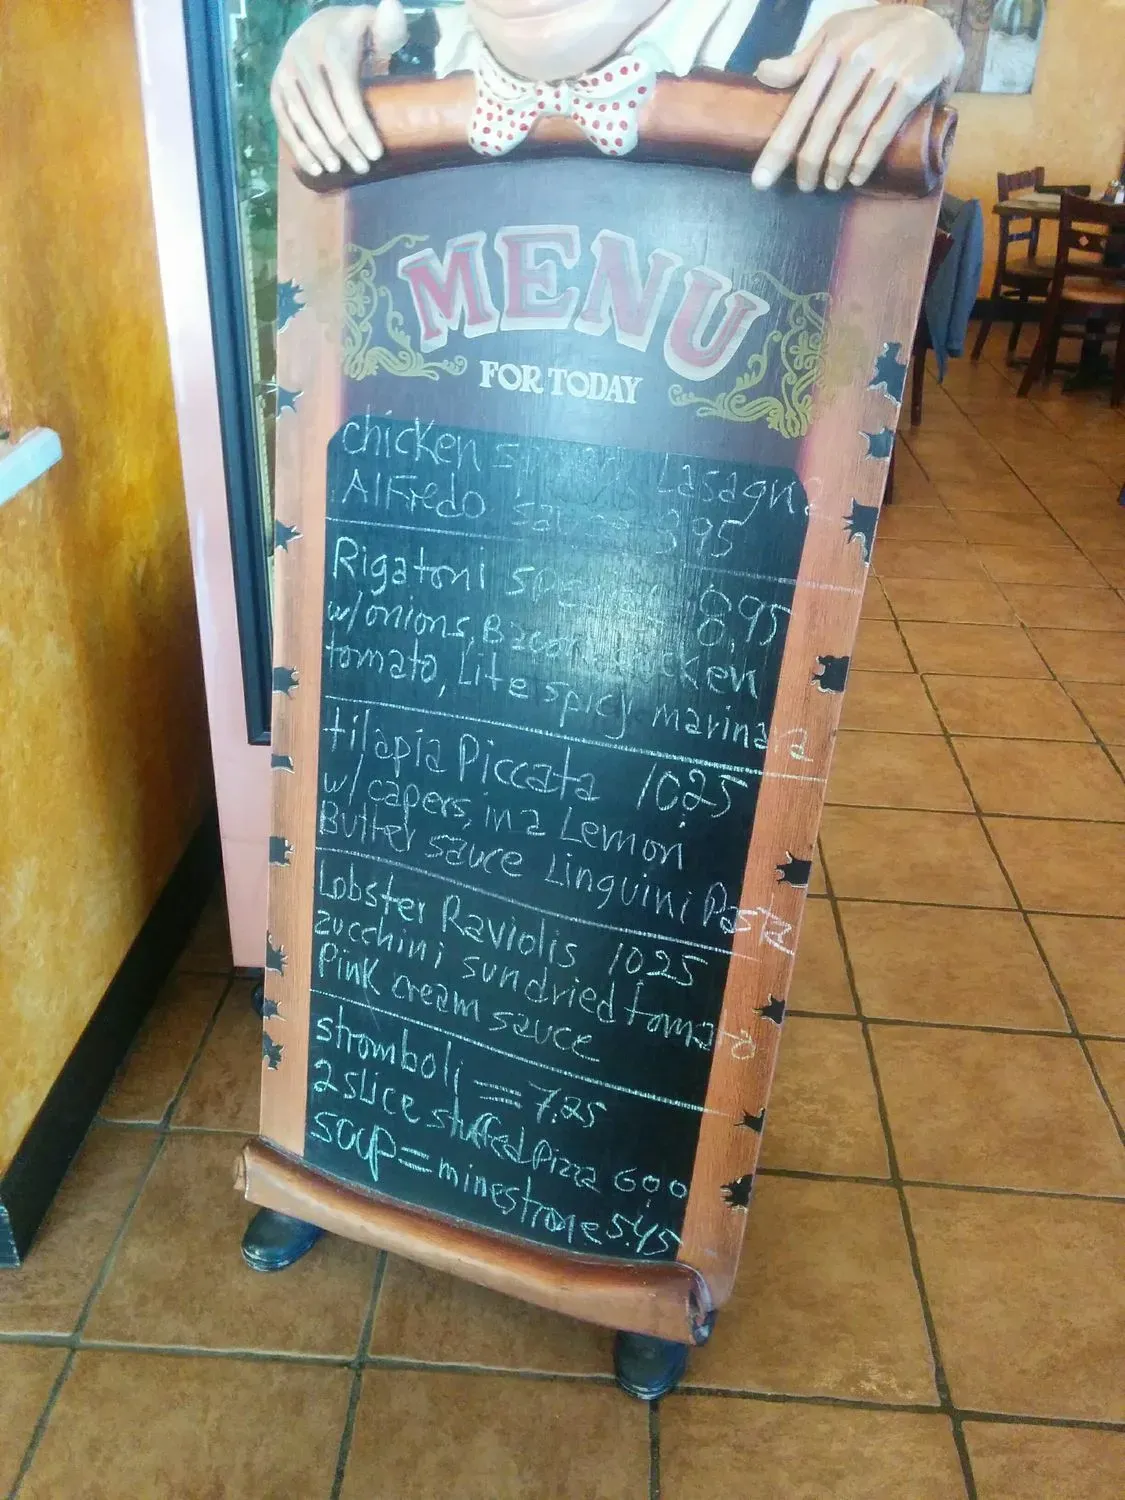 MENU
FOR TODAY
chicken spinach Lasagne
Alfredo sauce 8.95
Rigatoni special 8.95
w/onions, Bacon, chicken
tomato, Lite spicy marinara
tilapia Piccata 10.25
w/capers, in a Lemon
Butter sauce Linguini Pasta
Lobster Raviolis 10.25
zucchini sundried tomato
Pink cream sauce
stromboli = 7.25
2 slice stuffed Pizza 6.00
soup = minestrone 5.45